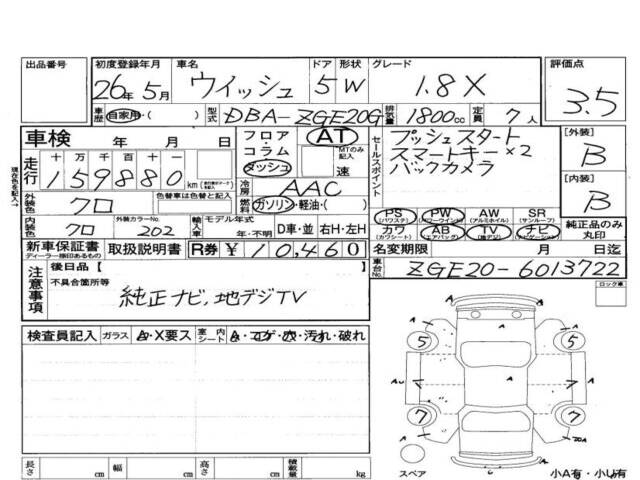 出品番号 初度登録年月 車名 ドア 形状 グレード 評価点
26年 5月 ウイッシュ 5 W 1.8X 3.5
車歴 自家用・( ) 型式 DBA-ZGE20G 排気量 1800cc 定員 7人
車検 年 月 日 フロア AT セールスポイント プッシュスタート [外装]
コラム MTのみ記入 スマートキー×2 B
ダッシュ 速 バックカメラ
走行 十万千百十一
159880 km
冷房 AAC [内装]
外装色 クロ 色替車は色替と元色 燃料 ガソリン・軽油・( ) B
PS PW AW SR
(パワステ) (パワーウインド) (アルミホイル) (サンルーフ)
内装色 クロ 外装カラーNo. 202 輸入車 モデル年式 カワ AB TV ナビ 純正品のみ丸印
年・不明 D車・並 右H・左H (カワシート) (エアバッグ) (地デジ) (ナビゲーション)
新車保証書 取扱説明書 R券 ¥10,460 名変期限 月 日迄
ディーラー様印のあるもの
車台No. ZGE20-6013722
注意事項 後日品【 】
不具合箇所等
純正ナビ,地デジTV
ロック車
検査員記入 ガラス A・X要ス 室内シート A・コゲ・穴・汚れ・破れ
5 5
A A A
A
A
7 7
A A
スペア 小A有・小U有
長さ cm 幅 cm 高さ cm 積載量 kg
現在色を記入→